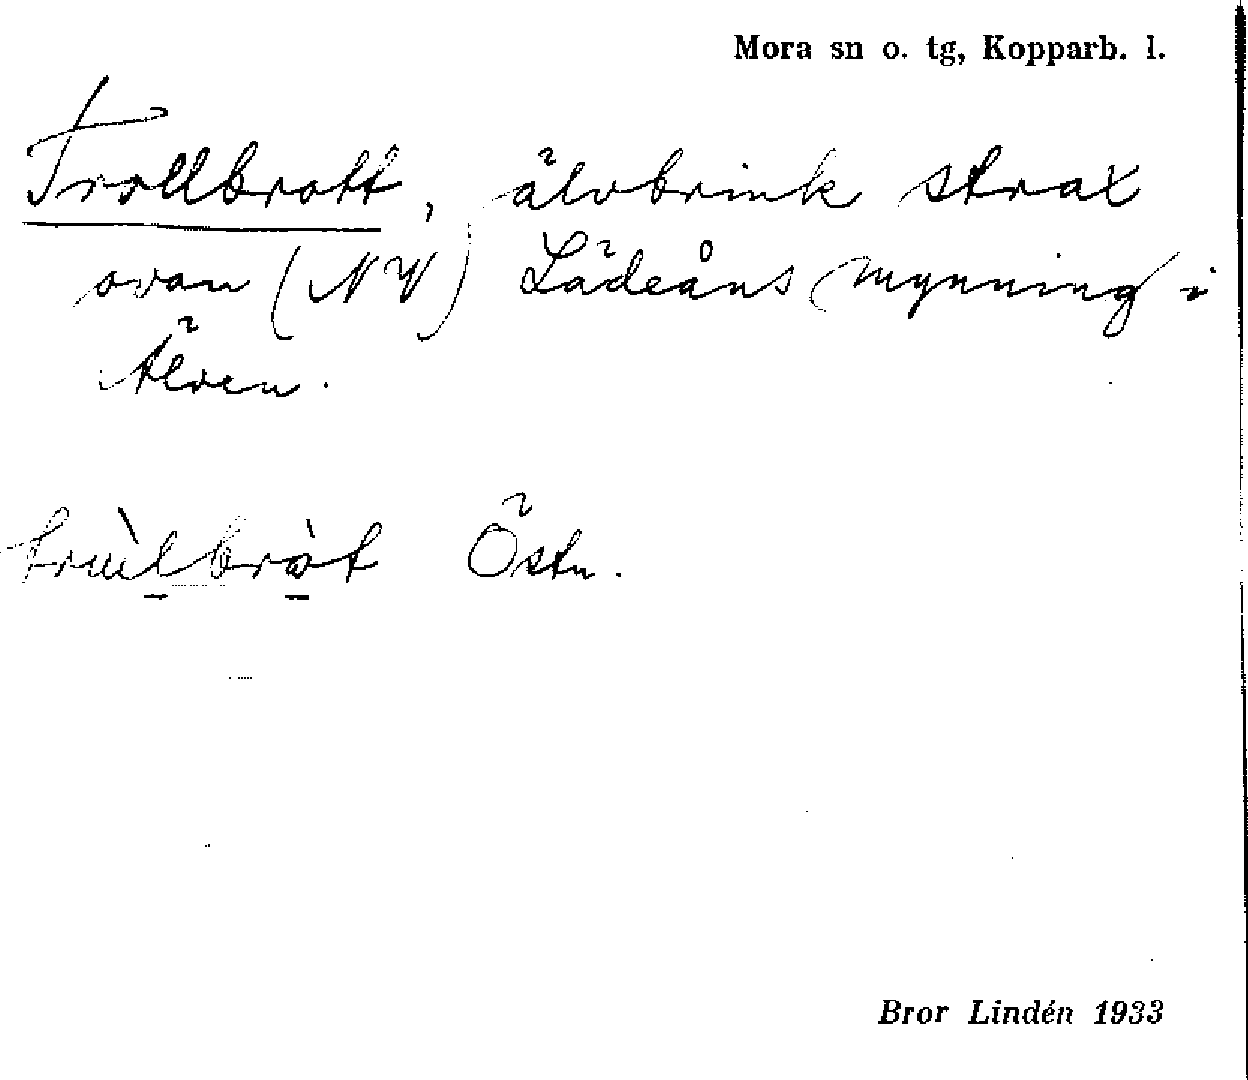 Mora sn o. tg, Kopparb. l.
Trollbrott, älvbrink strax
ovan (NV) Lädeåns mynning i
Älven.
trùlbròt Östn.
Bror Lindén 1933